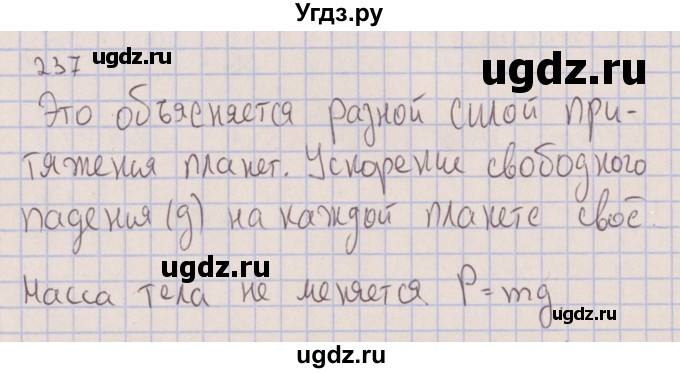 Угдз.ру
237 ugdz.ru
ugdz.ru
Это объясняется разной силой при-
тяжения планет. Ускорение свободного
падения (g) на каждой планете своё.
ugdz.ru
Масса тела не меняется P=mg
ugdz.ru
ugdz.ru